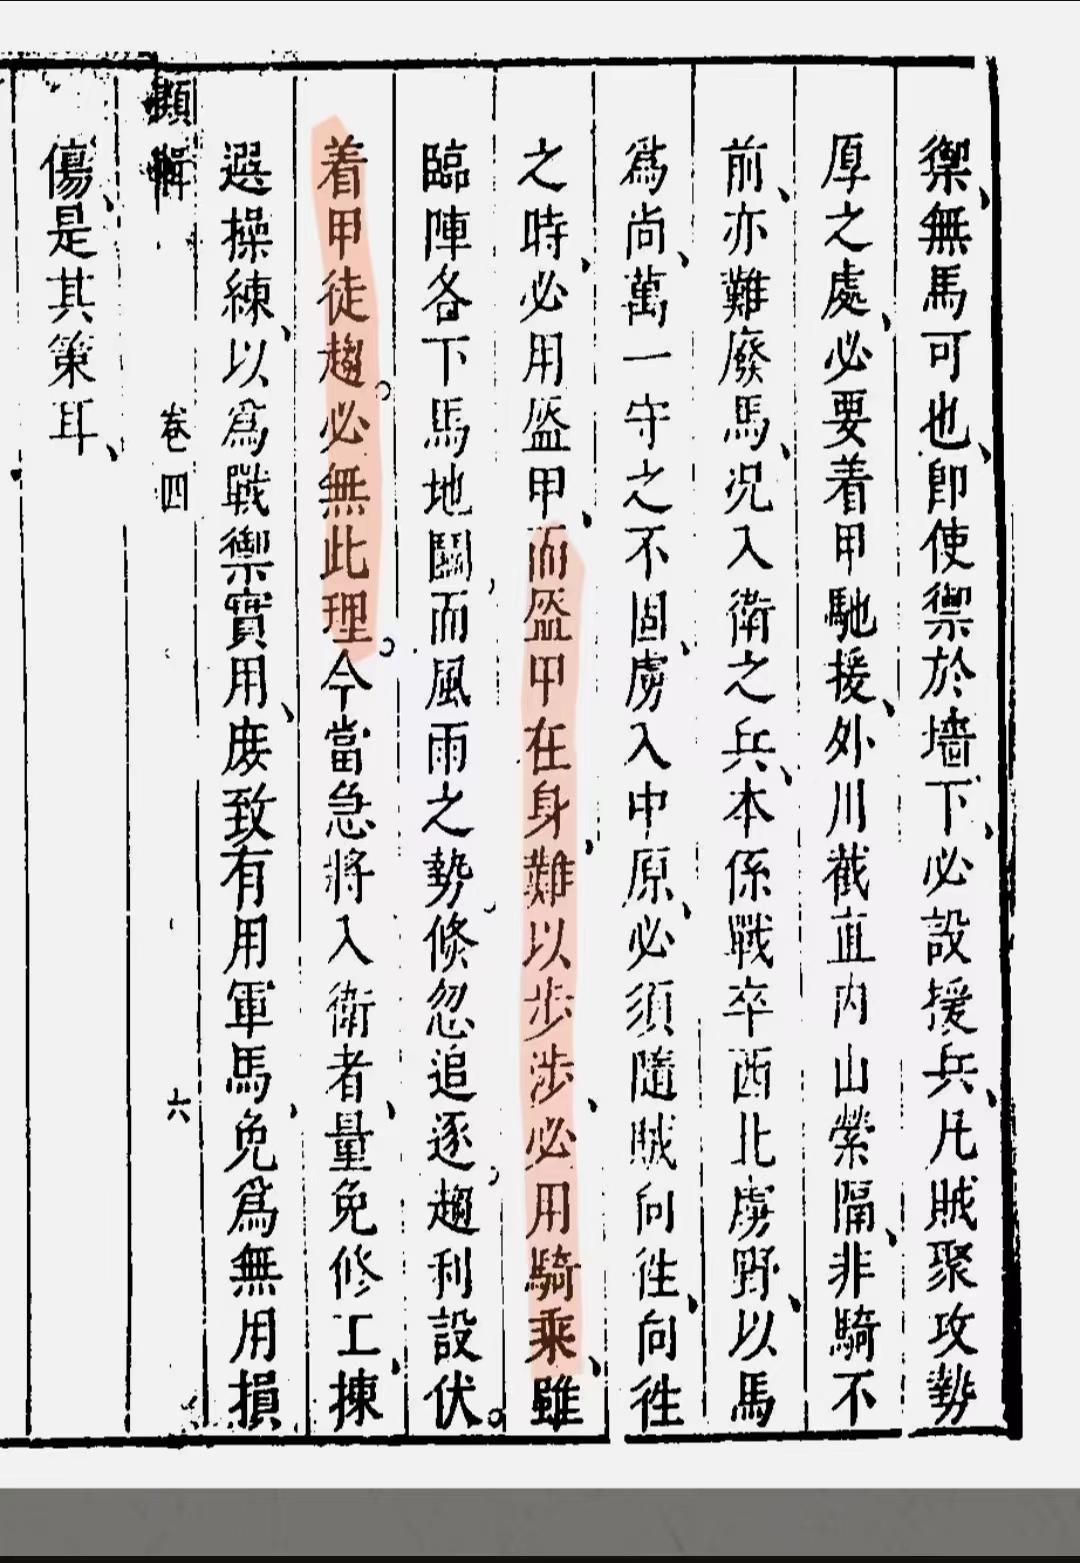 禦、無馬可也、即使禦於墻下、必設援兵、凡賊聚攻勢
厚之處、必要着甲馳援、外川截直内山縈隔、非騎不
前、亦難廢馬、况入衛之兵、本係戰卒西北虜野、以馬
爲尚、萬一守之不固、虜入中原、必須隨賊向徃、向徃
之時、必用盔甲、而盔甲在身、難以步涉、必用騎乘、雖
臨陣各下馬地鬭、而風雨之勢、倐忽追逐、趨利設伏。
着甲徒趨。必無此理。今當急將入衛者、量免修工、揀
選操練、以爲戰禦實用、庻致有用軍馬、免爲無用損
類輯 卷四 六
傷、是其策耳、